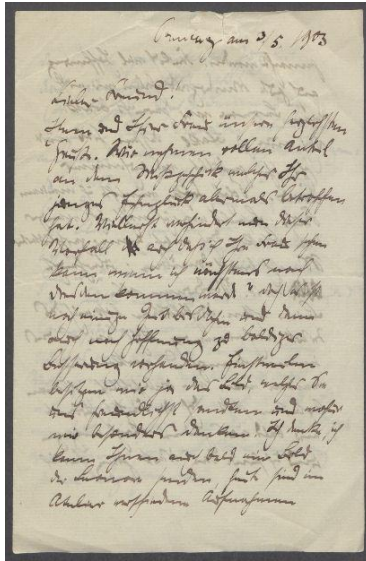 am 3/5. 1903
Lieber Freund!
Ihnen und Ihrer Frau unseren herzlichsten
Gruß. Wir nehmen vollen Anteil
an dem Mißgeschick welches Ihr
junges Eheglück abermals betroffen
hat. Vielleicht verhindert nun dieser
Vorfall nicht daß ich Ihre Frau schon
kann wenn ich nächstens nach
Dresden kommen werde
und dann
auch noch Hoffnung zu baldiger
vorhanden. Einstweilen
besitzen wir ja das Bild, welches Sie
uns freundlichst sandten und wofür
wir besonders danken! Ich denke ich
kann Ihnen auch bald ein Bild
der Eleonore senden, heute sind im
Atelier verschiedene Aufnahmen